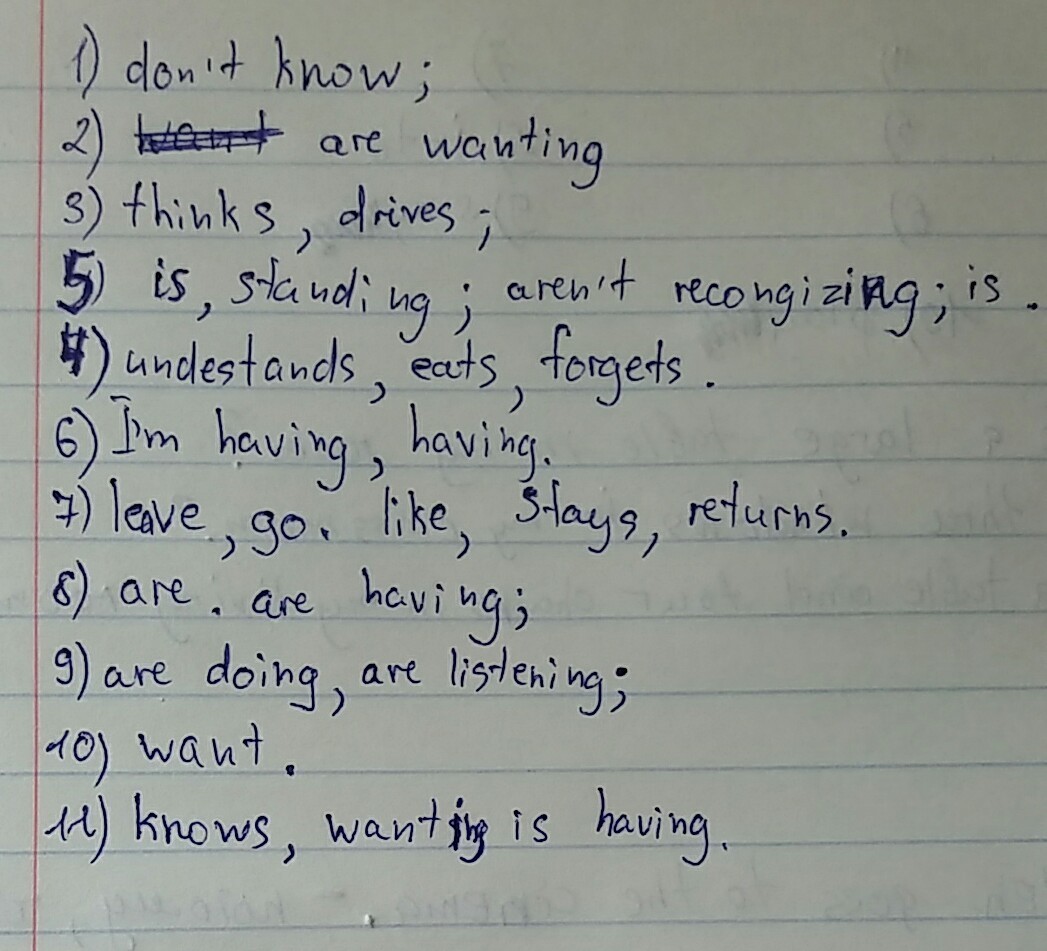 1) don't know;
2) are wanting
3) thinks, drives;
5) is, standing; aren't recongizing; is.
4) undestands, eats, forgets.
6) I'm having, having.
7) leave, go. like, stays, returns.
8) are. are having;
9) are doing, are listening;
10) want.
11) knows, wanting is having.